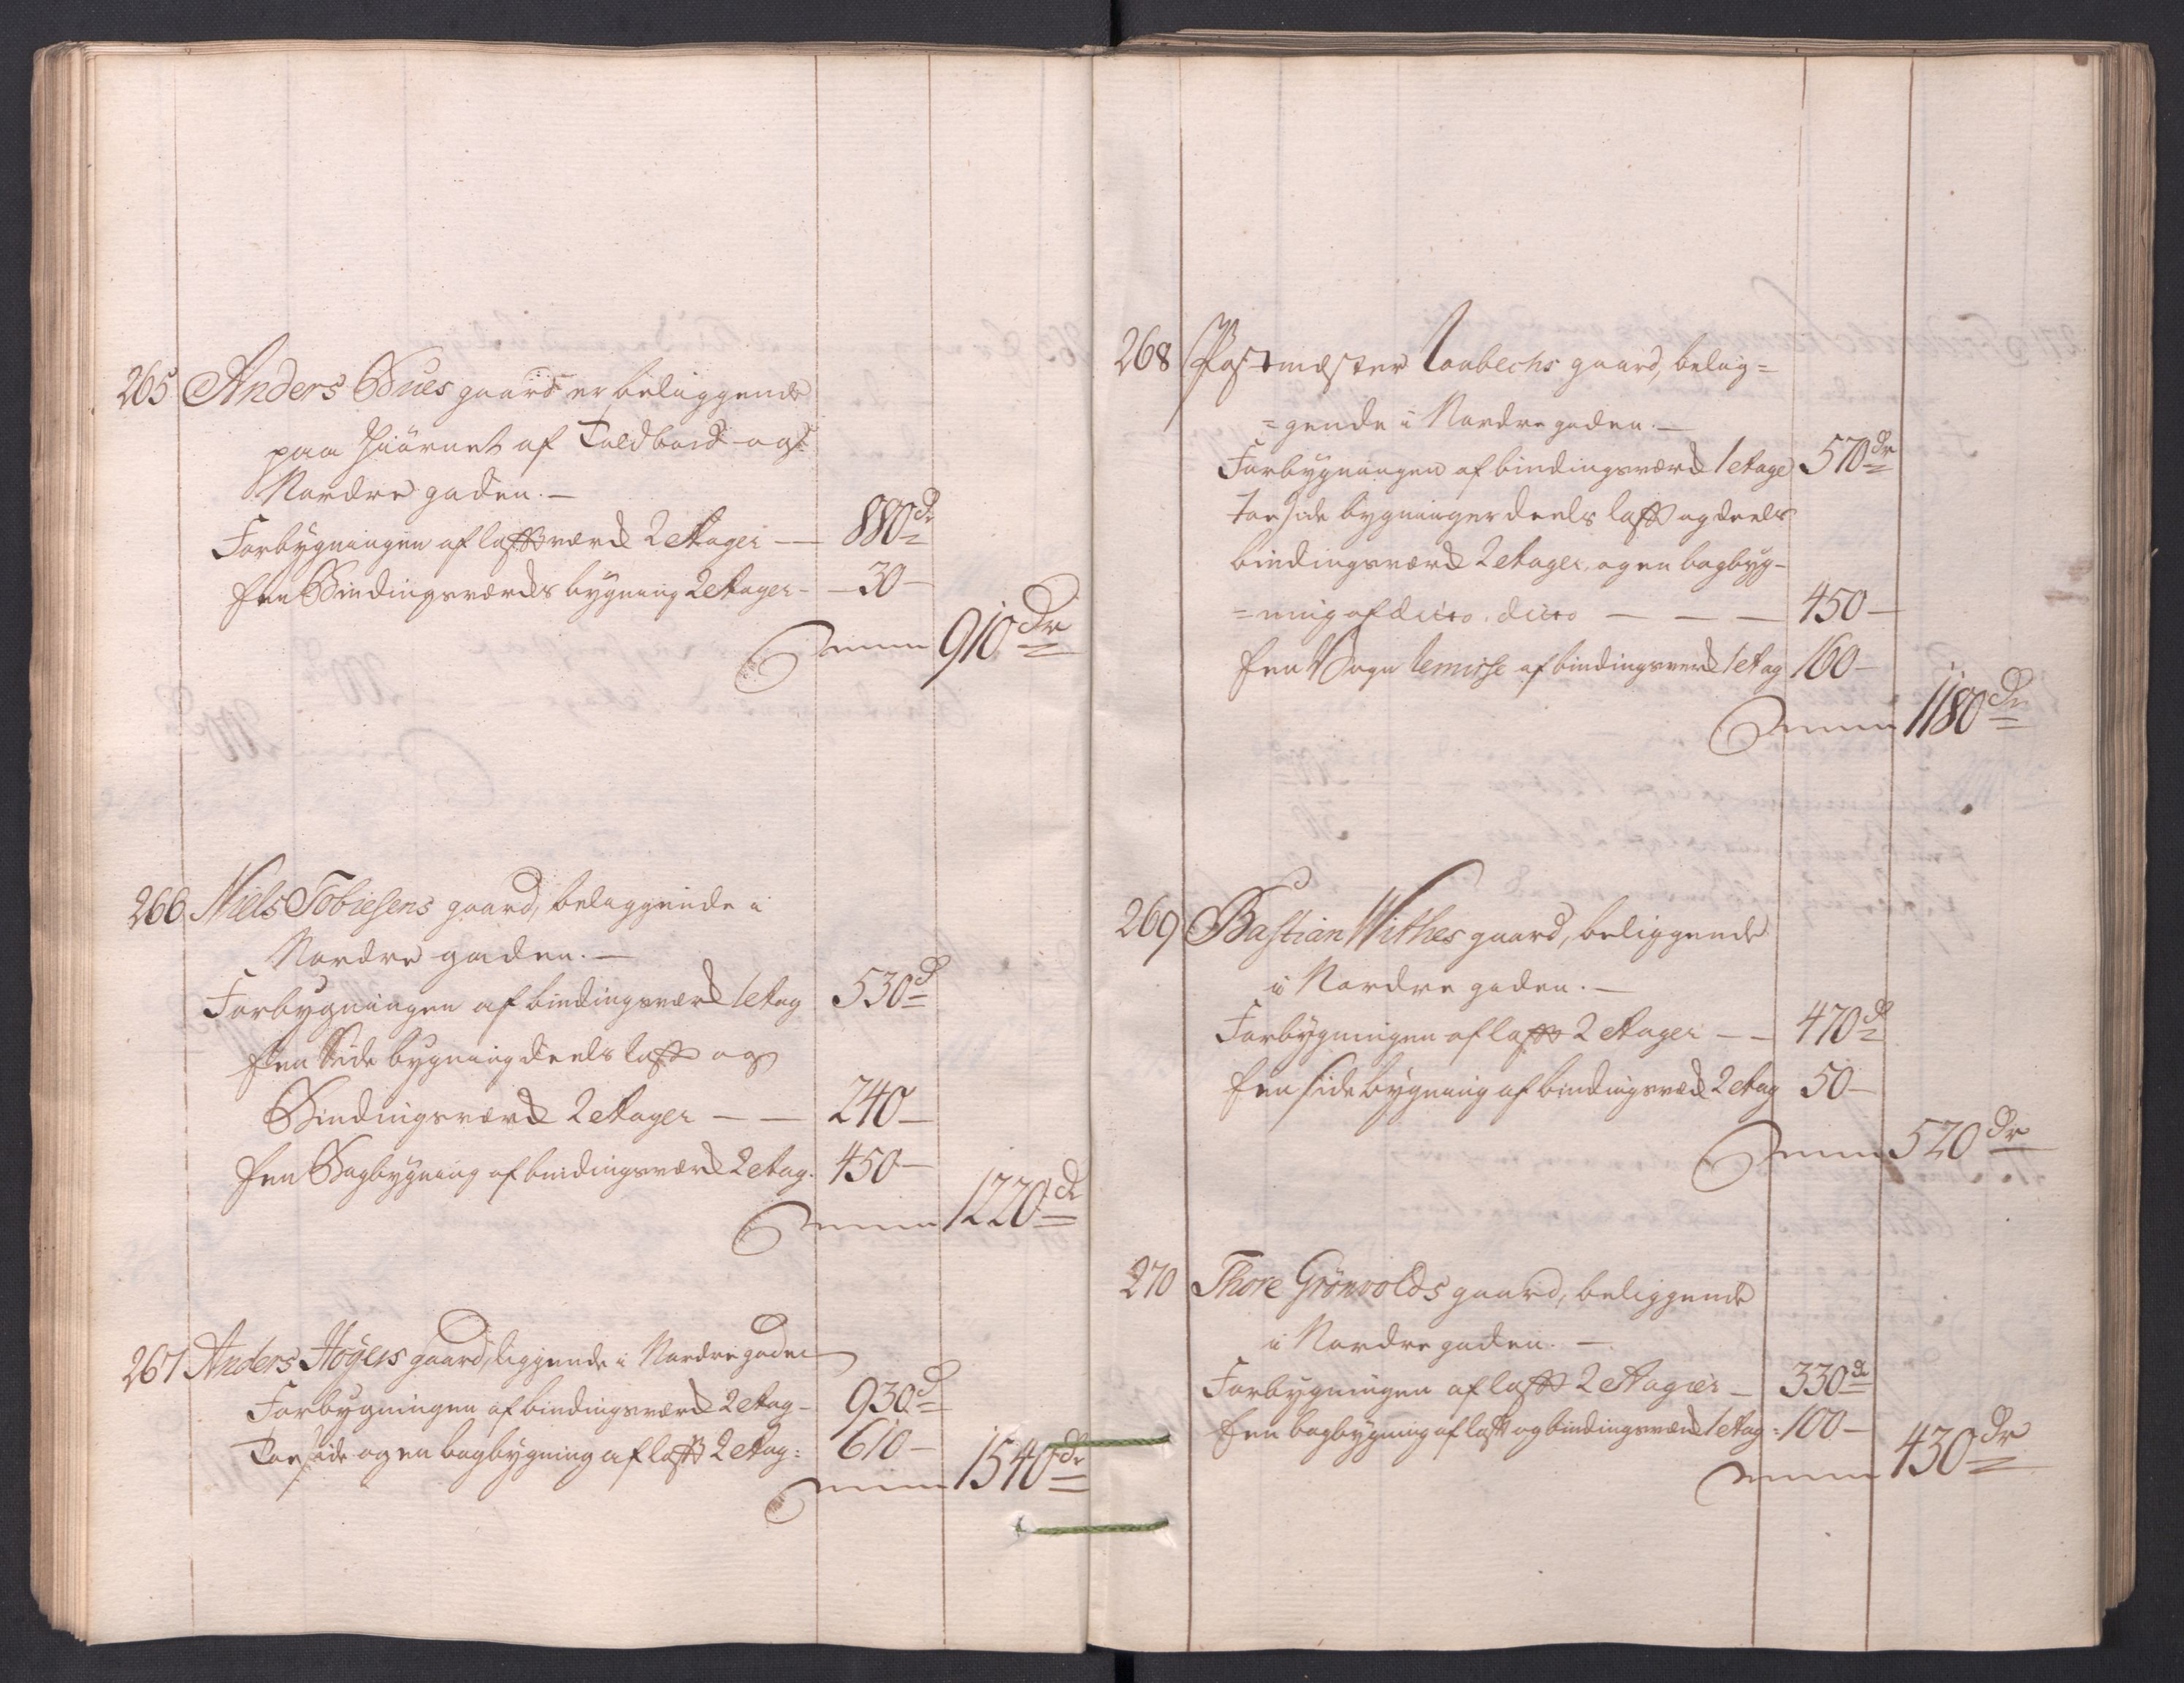 265 Anders Bues gaard er beliggende
paa Hiörnet af Toldbod- og
Nordre gaden. —
Forbygningen af laftværd 2 Etager — 880 dr
Een Bindingsværds bygning 2 Etager — 30 —
Summa 910 dr
266 Niels Tobiesens gaard, beliggende i
Nordre gaden. —
Forbygningen af bindingsværd 1 Etag 530 d
Een Side bygning deels laft og
Bindingsværd 2 Etager — — 240 —
Een Bagbygning af bindingsværd 2 Etag. 450 —
Summa 1220 dr
267 Anders Höyers gaard, liggende i Nordre gaden
Forbygningen af bindingsværd 2 Etag — 930 d
Toe side og en bagbygning af laft 2 Etag: 610 —
Summa 1540 dr
268 Postmester Raabechs gaard, belig=
=gende i Nordre gaden. —
Forbygningen af bindingsværd 1 Etage 570 dr
toe side bygninger deels laft og deels
bindingsværd 2 Etager, og en bagbyg-
=ning af dito. dito — — — 450 —
Een Vogn Remisse af bindingsverd 1 Etag 160 —
Summa 1180 dr
269 Bastian Withes gaard, beliggende
i Nordre gaden. —
Forbygningen af laft 2 Etager — — 470 d
Een side bygning af bindingsværd 2 Etag 50 —
Summa 520 dr
270 Thore Grönvolds gaard, beliggende
i Nordre gaden. —
Forbygningen af laft 2 Etager — 330 dr
Een bagbygning af laft og bindingsværd 1 Etag: 100 —
Summa 430 dr